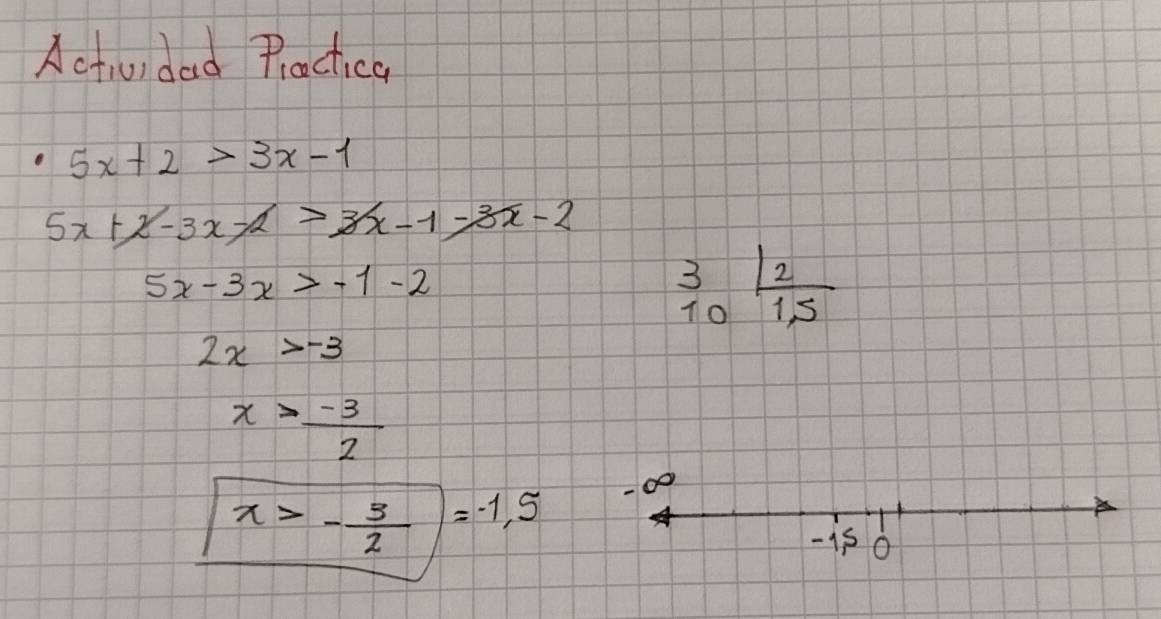 Actividad Practica
• 5x + 2 > 3x - 1
5x + 2 - 3x - 2 > 3x - 1 - 3x - 2
5x - 3x > -1 - 2
2x > -3
x > -3/2
x > - 3/2 = -1,5
3 | 2
10 1,5
-∞
-1,5 0